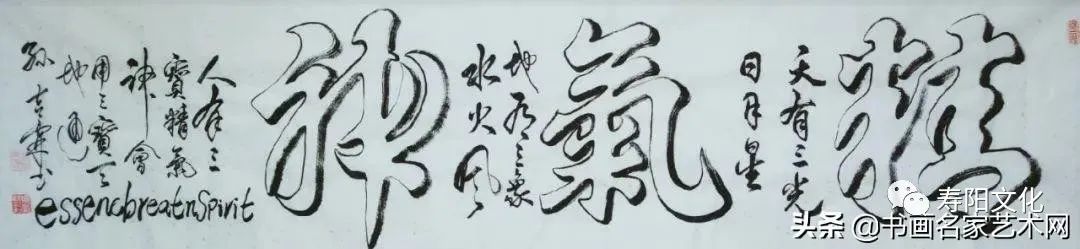 精
天有三光
日月星
氣
地有三象
水火风
神
人有三
寶精氣
神會
用三寶天
地通
孫
essencbreatnSpirit
寿阳文化
头条 @书画名家艺术网